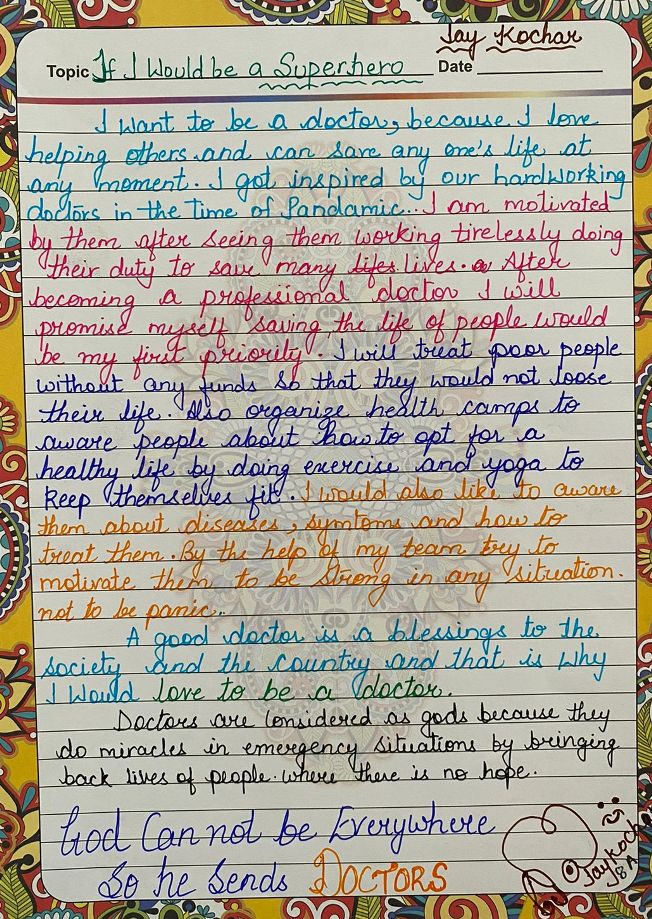 Jay Kochar
Topic If I Would be a Superhero Date
I want to be a doctor, because I love
helping others and can save any one's life at
any moment. I got inspired by our hardworking
doctors in the time of Pandamic... I am motivated
by them after seeing them working tirelessly doing
their duty to save many lifes lives. a After
becoming a professional doctor I will
promise myself saving the life of people would
be my first priority. I will treat poor people
without any funds so that they would not loose
their life. Also organize health camps to
aware people about how to opt for a
healthy life by doing exercise and yoga to
keep themselves fit. I would also like to aware
them about diseases, symtoms and how to
treat them. By the help of my team try to
motivate them to be strong in any situation.
not to be panic..
A good doctor is a blessings to the
society and the country and that is why
I would love to be a doctor.
Doctors are considered as gods because they
do miracles in emergency situations by bringing
back lives of people. where there is no hope.
God Can not be Everywhere
So he Sends DOCTORS
Jay Kochar
8A